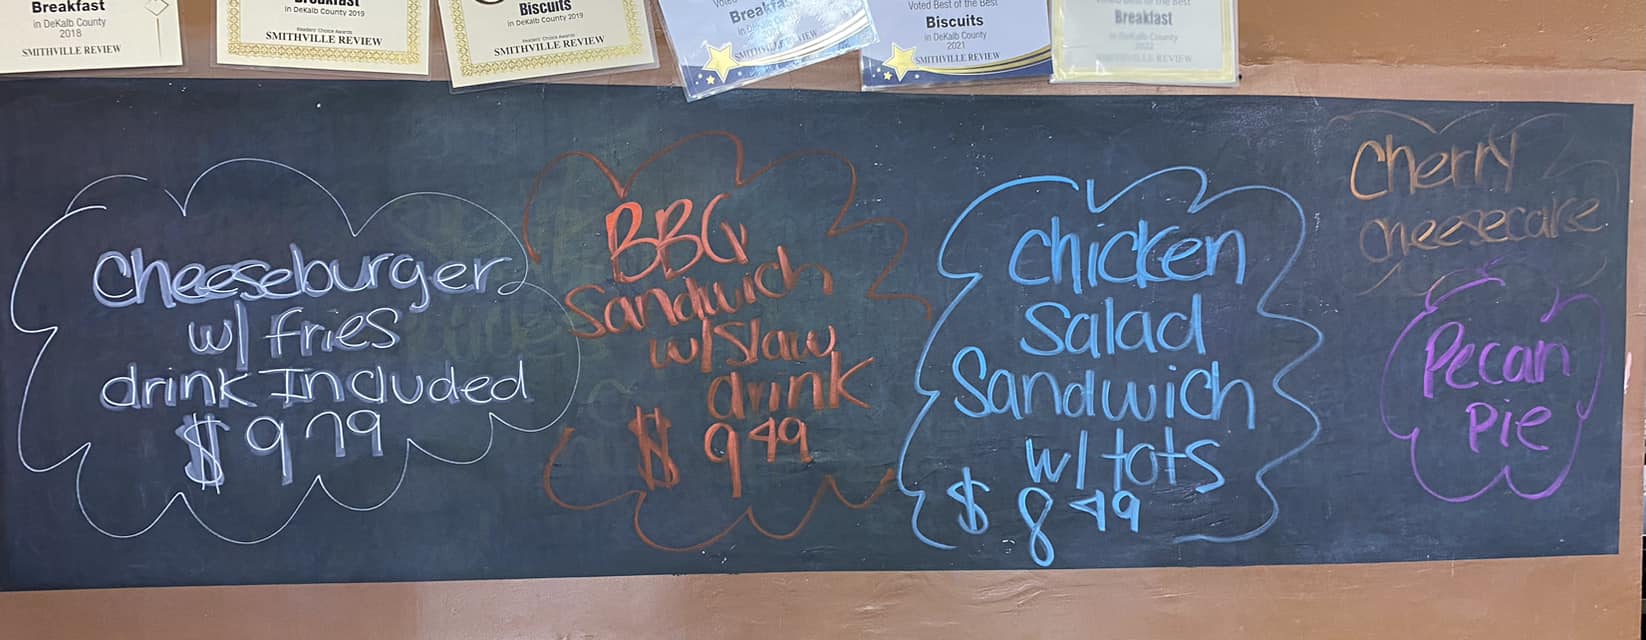 Breakfast
in DeKalb County
2018
SMITHVILLE REVIEW
Breakfast
in DeKalb County 2019
Readers' Choice Awards
SMITHVILLE REVIEW
Biscuits
in DeKalb County 2019
Readers' Choice Awards
SMITHVILLE REVIEW
Voted
Breakfast
SMITHVILLE REVIEW
Voted Best of the Best
Biscuits
in DeKalb County
2021
SMITHVILLE REVIEW
Voted Best of the Best
Breakfast
in DeKalb County
2022
SMITHVILLE REVIEW
Cheeseburger
w/ fries
drink Included
$ 9 79
BBQ
Sandwich
w/ Slaw
drink
$ 9 49
Chicken
Salad
Sandwich
w/ tots
$ 8 49
Cherry
Cheesecake
Pecan
Pie